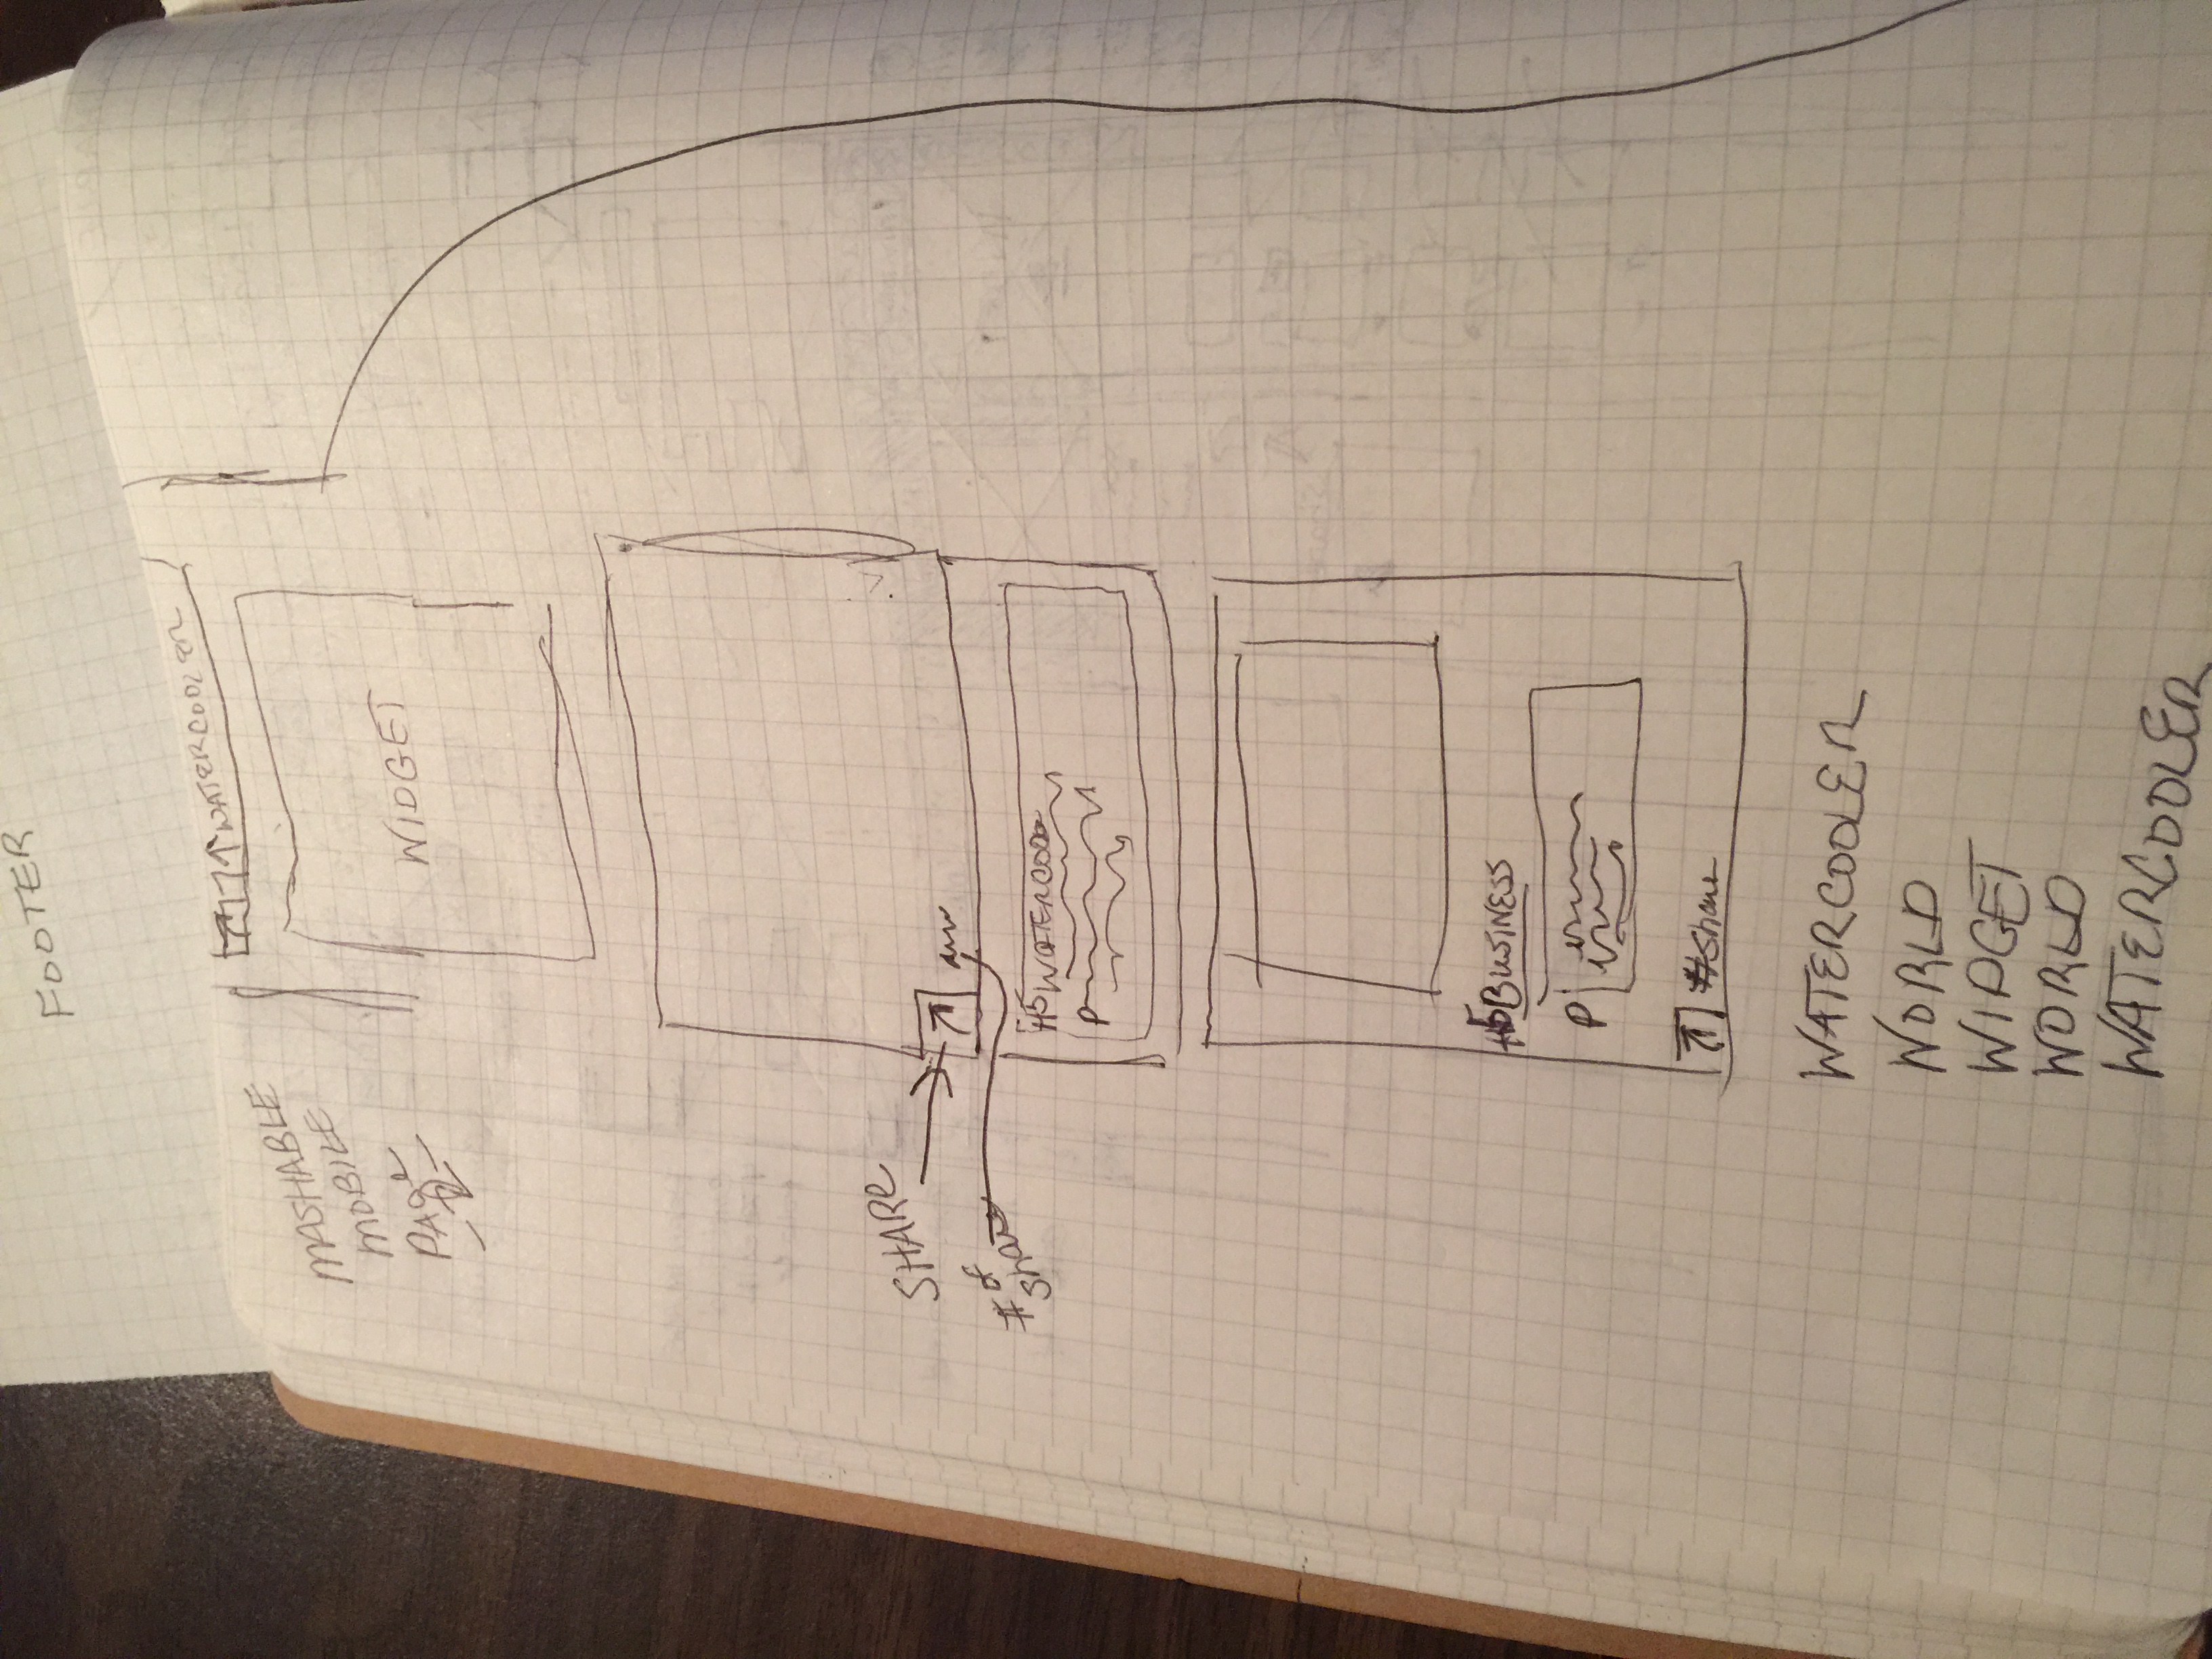 FOOTER
WATERCOOLER
MASHABLE
MOBILE
PAge
-2-
WIDGET
SHARe
# of
share
H5 WATERCOO
P
H5 BUSINESS
P
#Share
WATERCOOLER
WORLD
WIDGET
WORLD
WATERCOOLER